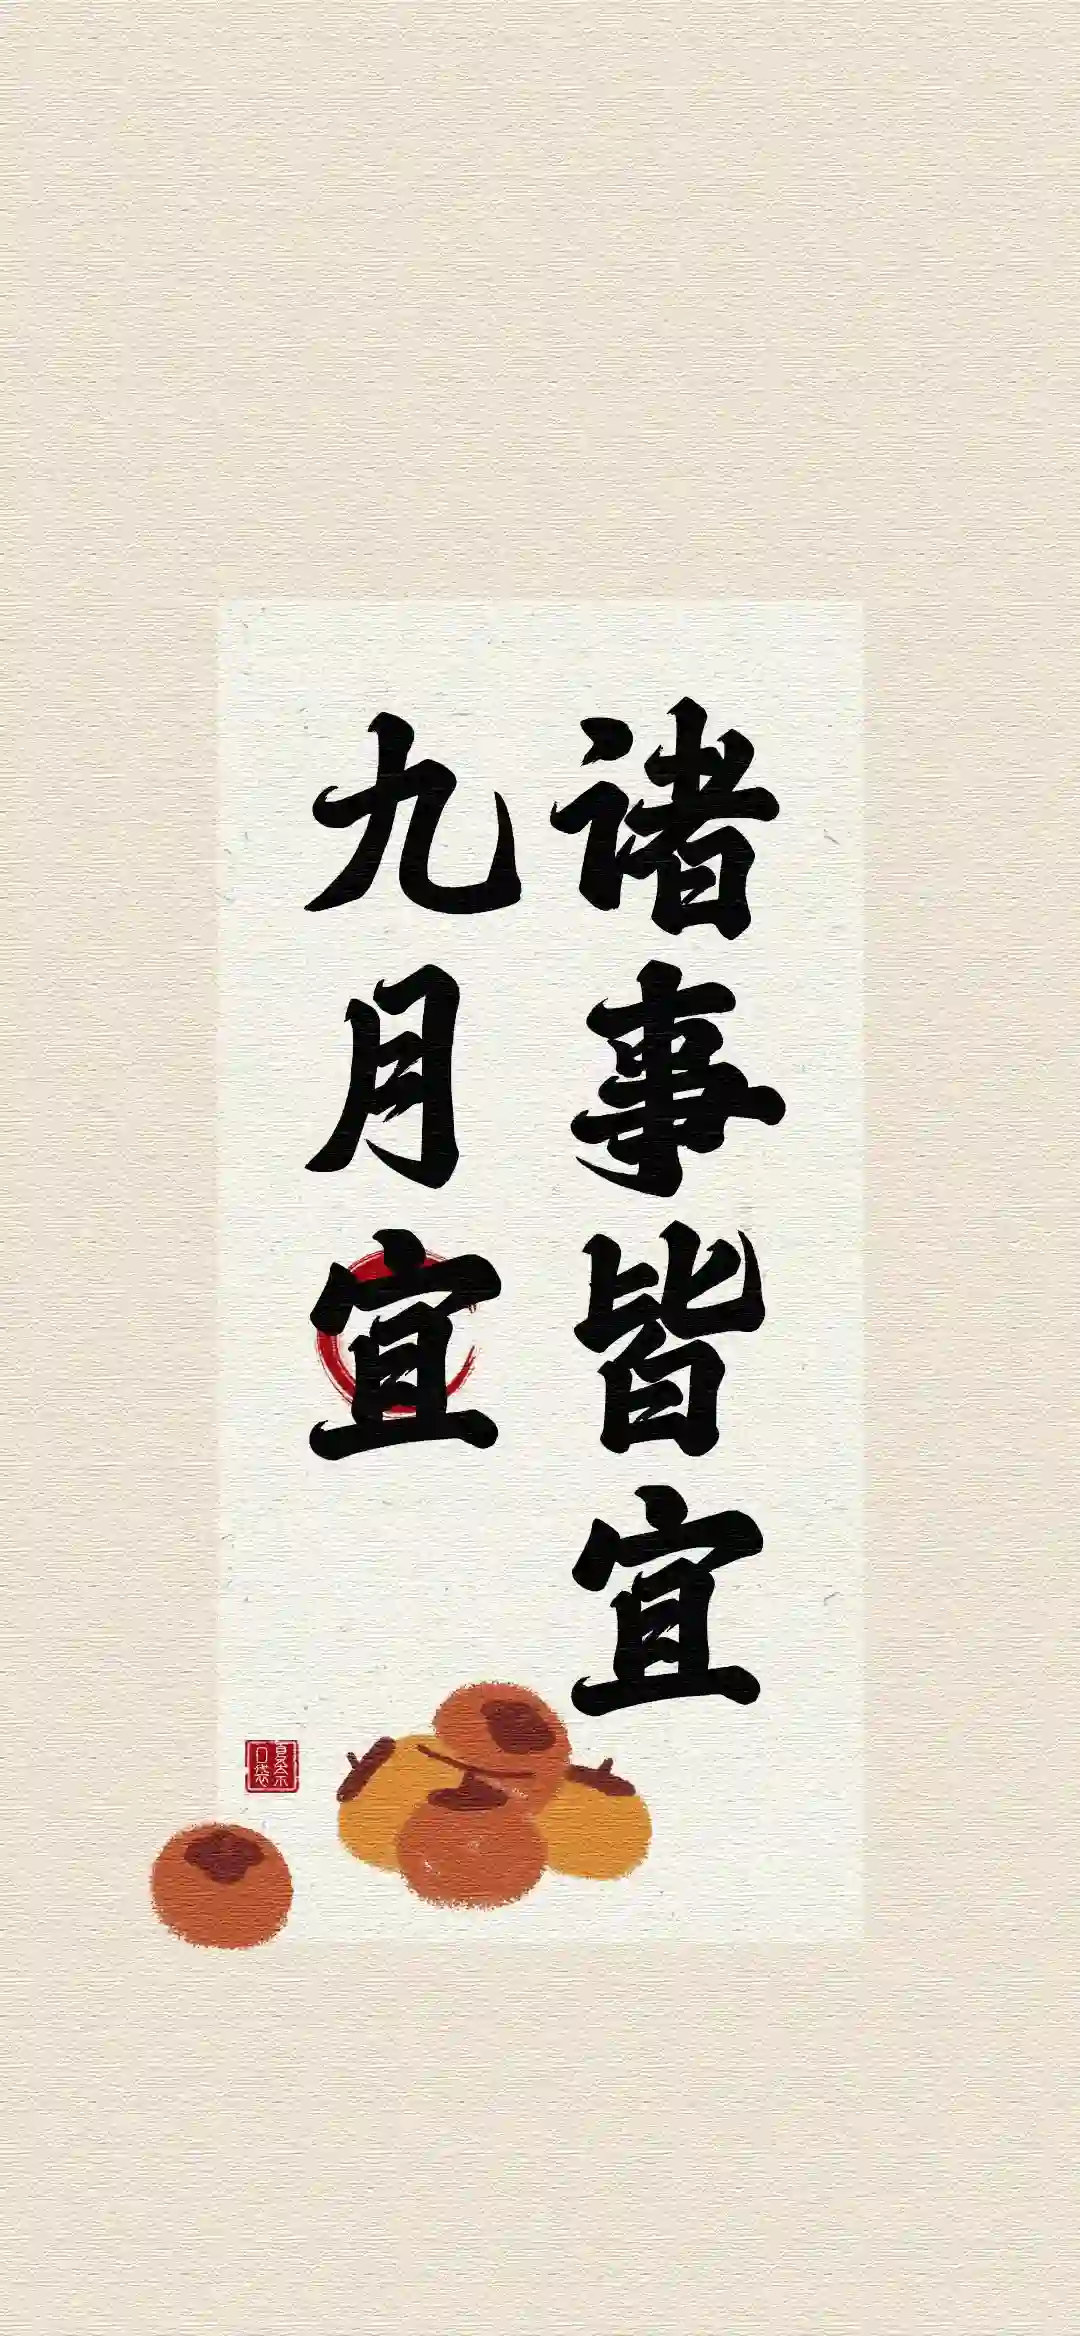 诸事皆宜
九月宜